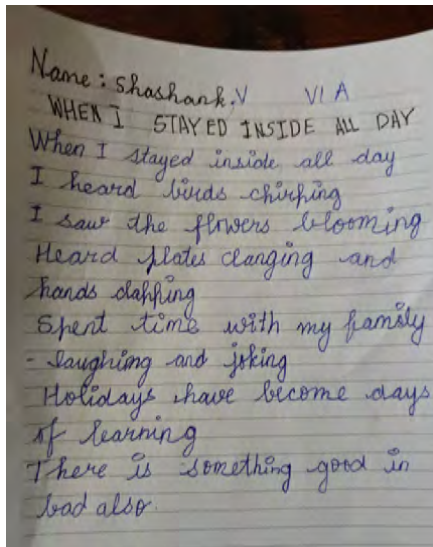 Name: Shashank.V VI A
WHEN I STAYED INSIDE ALL DAY
When I stayed inside all day
I heard birds chirping
I saw the flowers blooming
Heard plates clanging and
hands clapping
Spent time with my family
- laughing and joking
Holidays have become days
of learning
There is something good in
bad also.